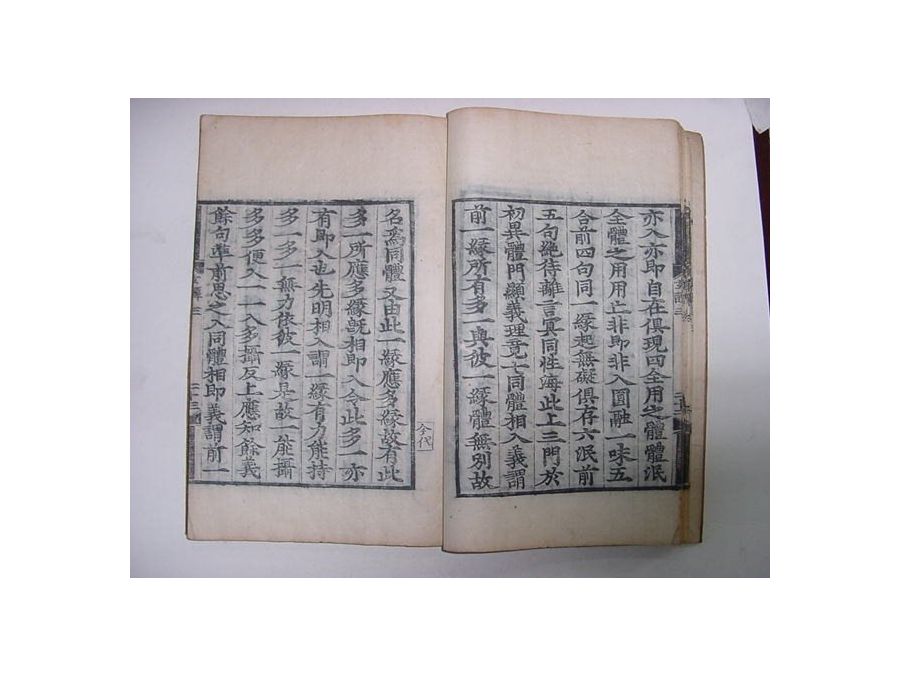 亦入亦即自在俱現四全用之體體泯
全體之用用亡非即非入圓融一味五
合前四句同一緣起無礙俱存六泯前
五句絶待離言冥同性海此上三門於
初異體門顯義理竟七同體相入義謂
前一緣所有多一與彼一緣體無別故
名爲同體又由此一緣應多緣故有此
多一所應多緣旣相即入令此多一亦
有即入也先明相入謂一緣有力能持
多一多一無力依彼一緣是故一能攝
多多便入一一入多攝反上應知餘義
餘句準前思之八同體相即義謂前一
今代